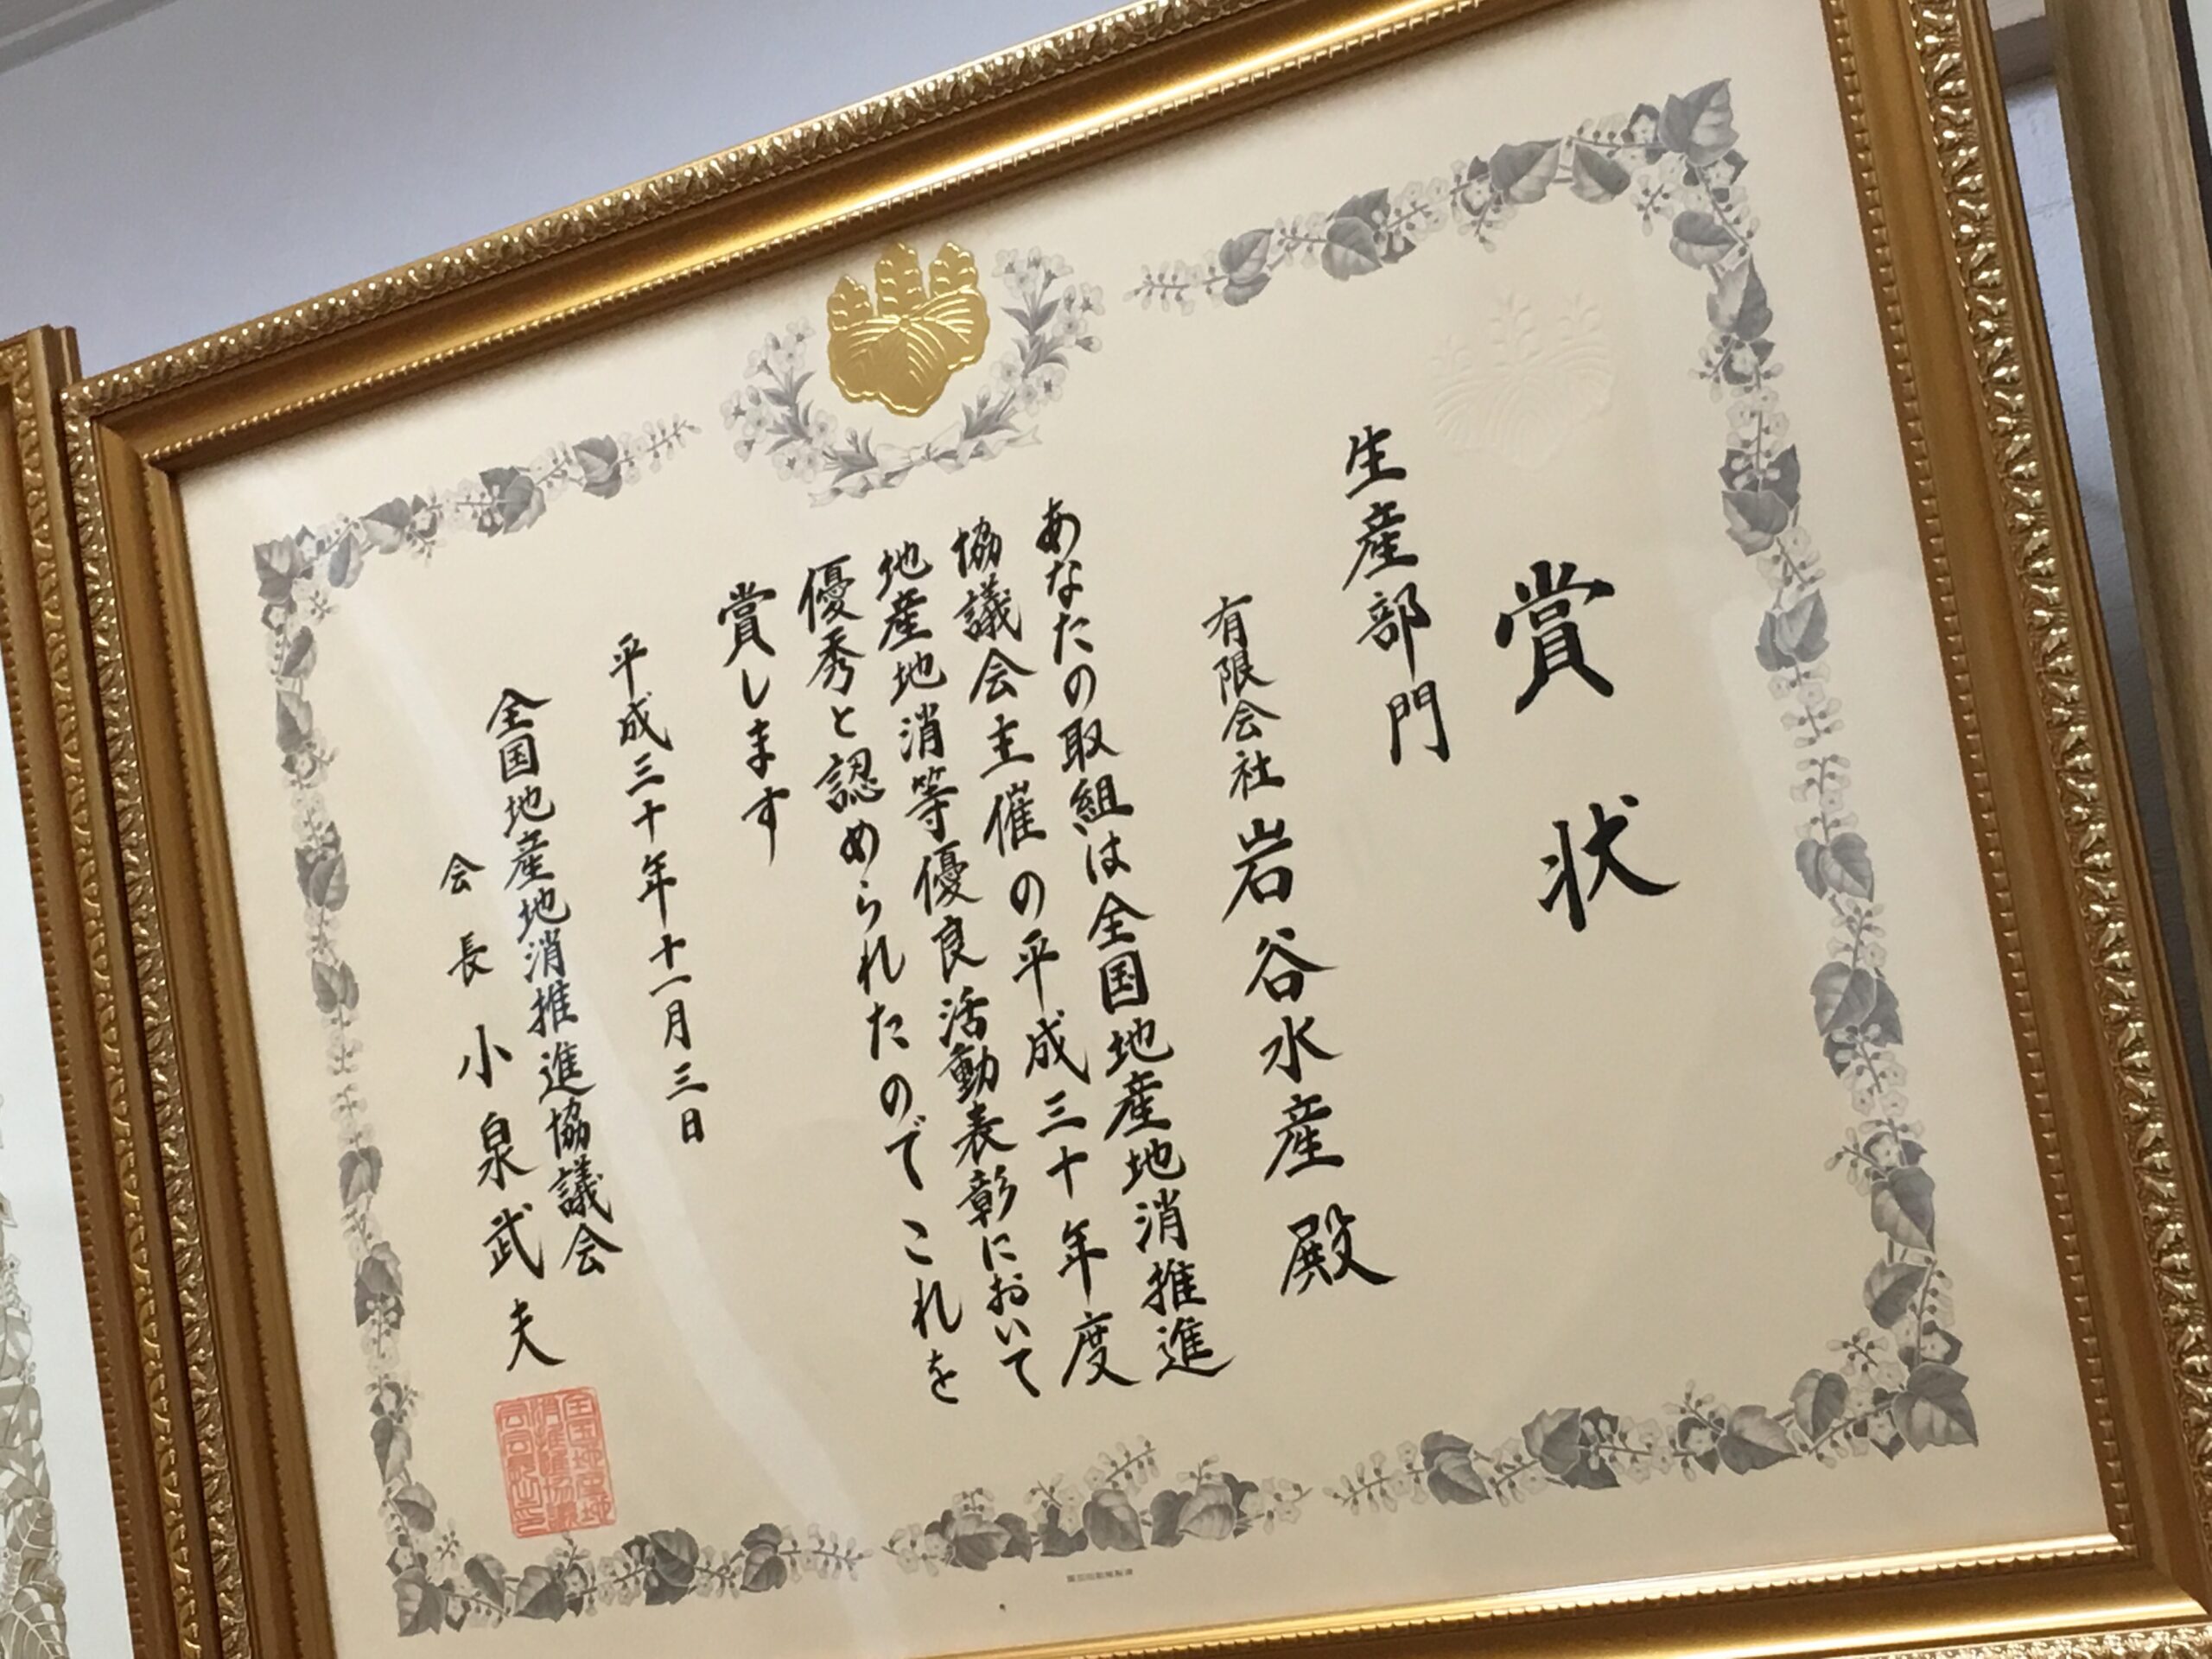 賞状
生産部門
有限会社岩谷水産殿
あなたの取組は全国地産地消推進
協議会主催の平成三十年度
地産地消等優良活動表彰において
優秀と認められたのでこれを
賞します
平成三十年十一月三日
全国地産地消推進協議会
会長小泉武夫